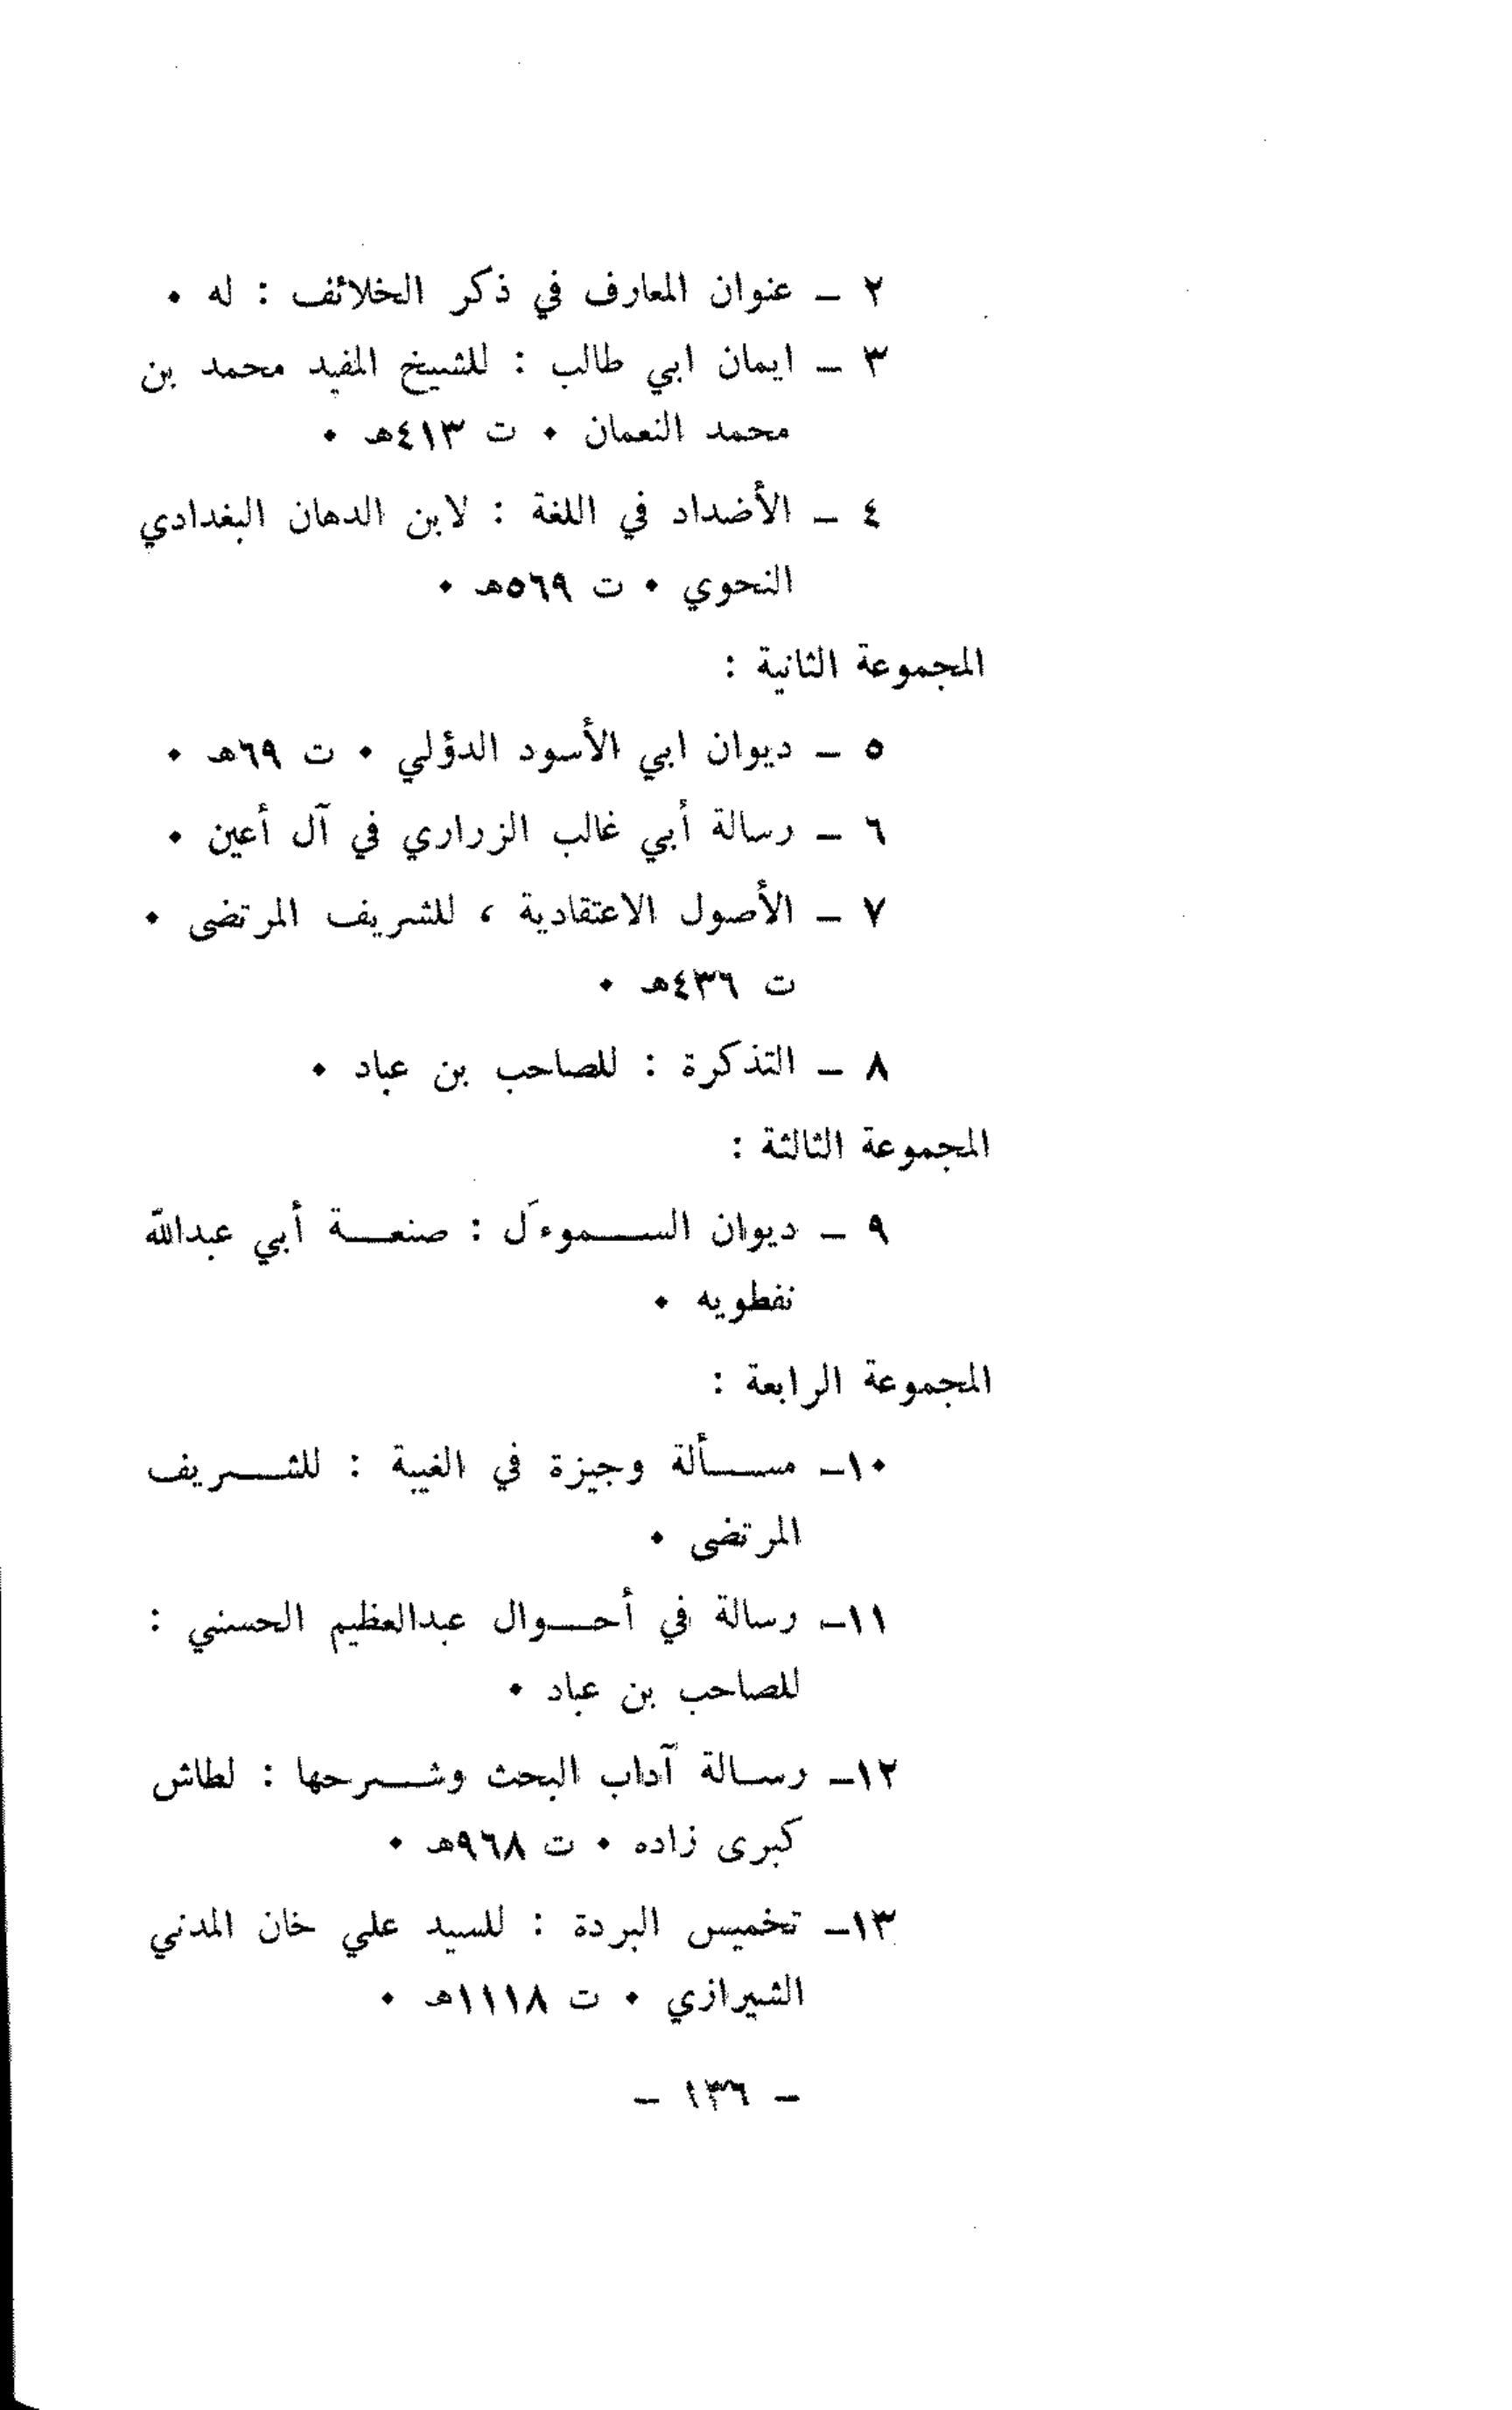 ٢ ــ عنوان المعارف في ذكر الخلائف : له ٠
٣ ــ ايمان ابي طالب : للشيخ المفيد محمد بن
محمد النعمان ٠ ت ٤١٣هـ ٠
٤ ــ الأضداد في اللغة : لابن الدهان البغدادي
النحوي ٠ ت ٥٦٩هـ ٠
المجموعة الثانية :
٥ ــ ديوان ابي الأسود الدؤلي ٠ ت ٦٩هـ ٠
٦ ــ رسالة أبي غالب الزراري في آل أعين ٠
٧ ــ الأصول الاعتقادية ، للشريف المرتضى ٠
ت ٤٣٦هـ ٠
٨ ــ التذكرة : للصاحب بن عباد ٠
المجموعة الثالثة :
٩ ــ ديوان الســـموءَل : صنعـــة أبي عبدالله
نفطويه ٠
المجموعة الرابعة :
١٠ــ مســـألة وجيزة في الغيبة : للشـــريف
المرتضى ٠
١١ــ رسالة في أحـــوال عبدالعظيم الحسني :
للصاحب بن عباد ٠
١٢ــ رســـالة آداب البحث وشـــرحها : لطاش
كبرى زاده ٠ ت ٩٦٨هـ ٠
١٣ــ تخميس البردة : للسيد علي خان المدني
الشيرازي ٠ ت ١١١٨هـ ٠
ــ ١٣٦ ــ